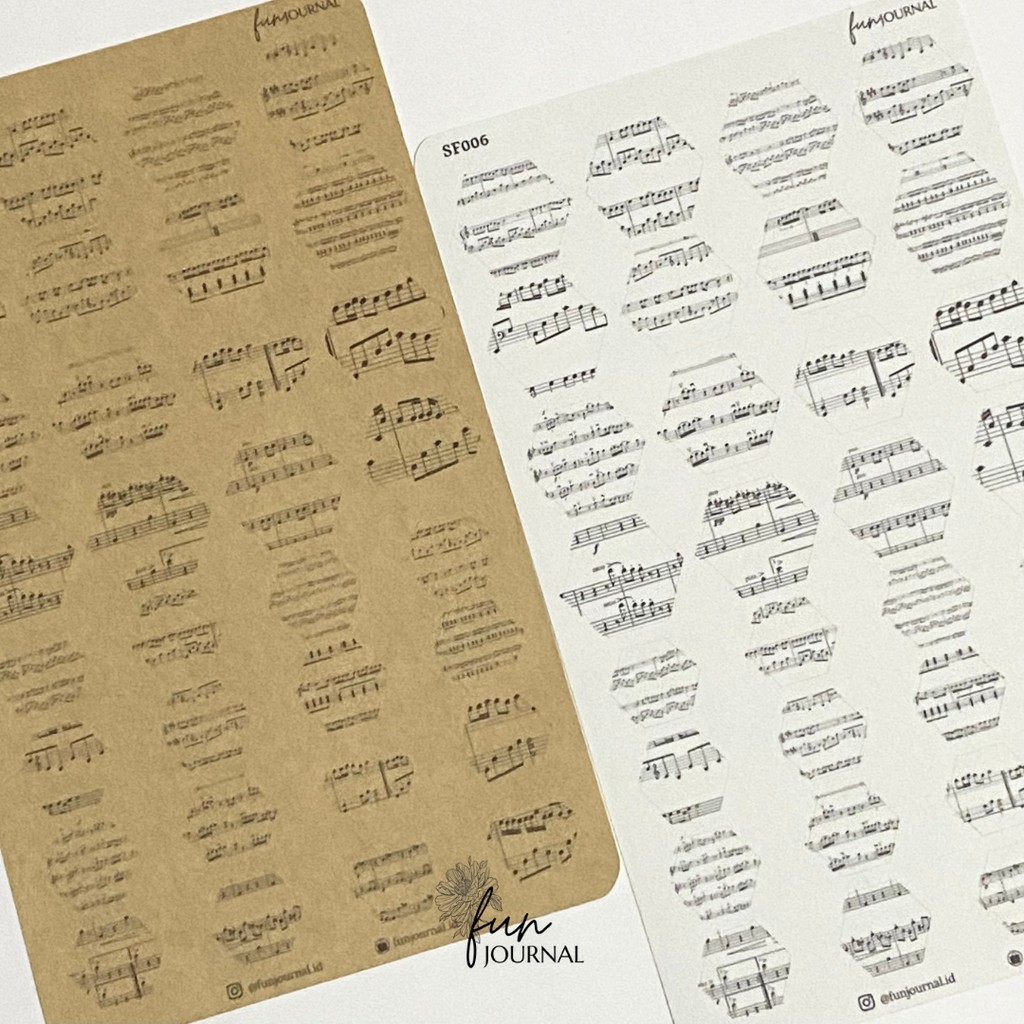 fun JOURNAL
fun JOURNAL
SF006
funjournal.id
@funjournal.id
@funjournal.id
fun
JOURNAL